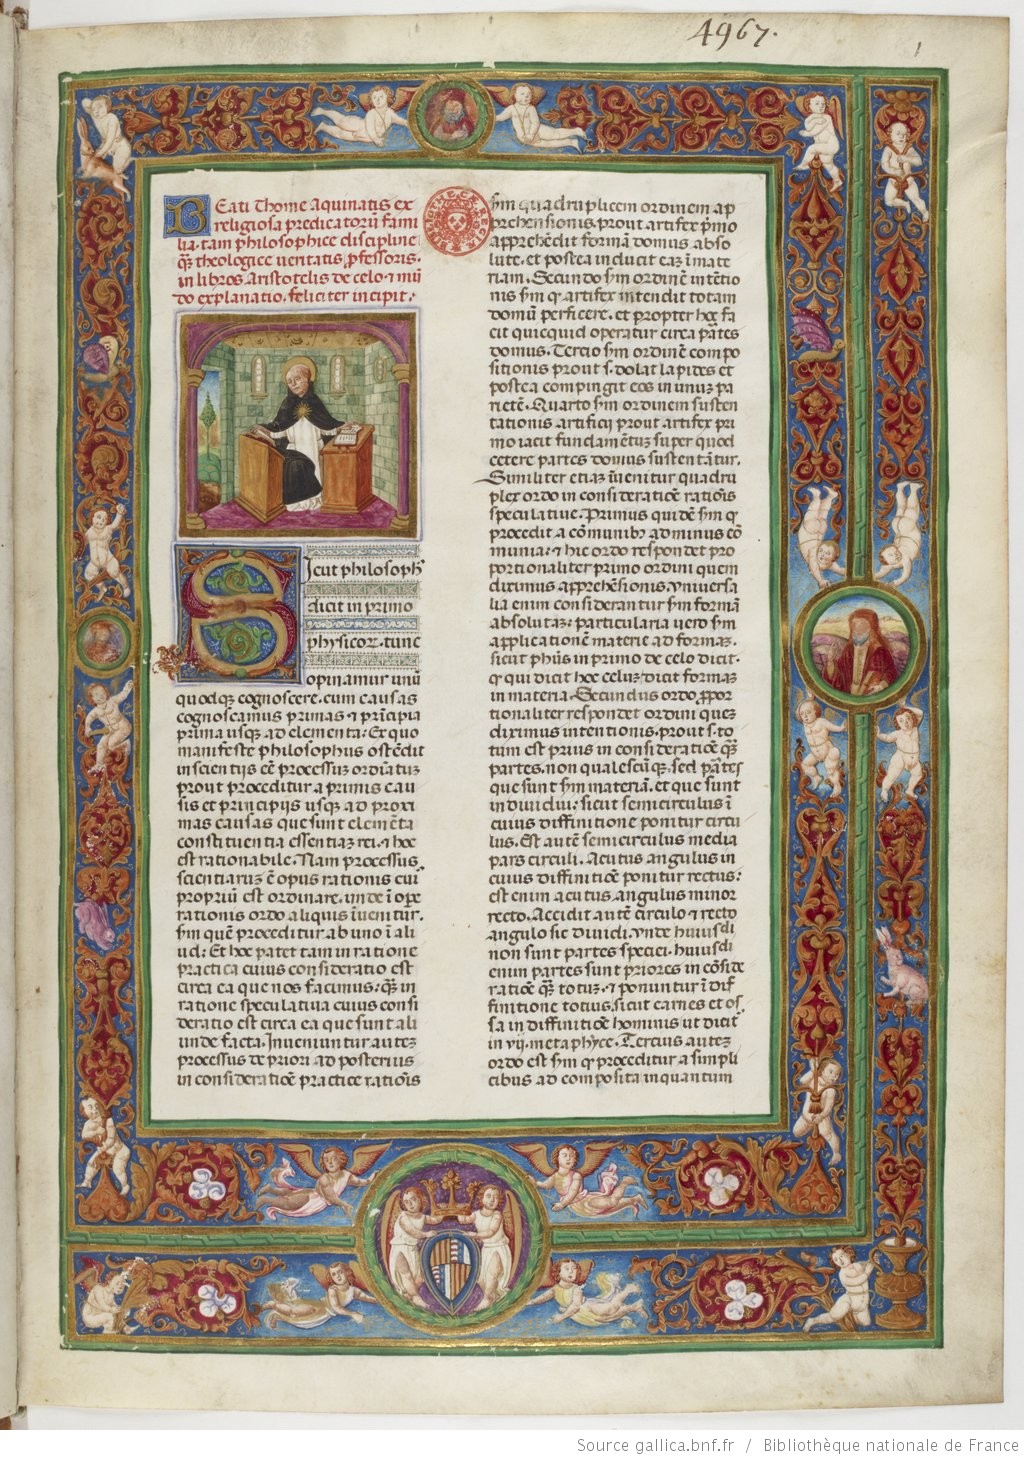 4967.
1
Eati Thome Aquinatis ex
religiosa predicatorū fami
lia. tam philosophice discipline
q̄ꝫ theologice ueritatis ꝓfessoris.
in libros Aristotelis de celo ⁊ mū
do explanatio. feliciter incipit.
S
Icut philosoph᾽
dicit in primo
physicoꝝ. tunc
opinamur unū
quodqꝫ cognoscere. cum causas
cognoscamus primas ⁊ prīcipia
prima usqꝫ ad elementa: Ex quo
manifeste philosophus ostēdit
in scientijs eē processuꝫ ordīatuꝫ
prout proceditur a primis cau
sis et principijs usqꝫ ad proxi
mas causas que sunt elemēta
constituentia essentiaꝫ rei. ⁊ hoc
est rationabile. Nam processus
scientiaruꝫ ē opus rationis cui᾽
propriū est ordinare. unde ī oꝑe
rationis ordo aliquis īuenitur.
s̄m quem proceditur ab uno ī ali
ud: Et hoc patet tam in ratione
practica cuius consideratio est
circa ea que nos facimus: q̄ꝫ in
ratione speculatiua cuius consi
deratio est circa ea que sunt ali
unde facta. Inueniuntur auteꝫ
processus de priori ad posterius
in consideratiōe practice ratiōis
s̄m quadruplicem ordinem ap
prehensionis. prout artifex p̄mo
apprehēdit formā domus abso
lute. et postea inducit eaꝫ ī mate
riam. Secundo s̄m ordinē intētio
nis s̄m ꝙ artifex intendit totam
domū perficere. et propter hoc fa
cit quicquid operatur circa ꝑtes
domus. Tercio s̄m ordinē compo
sitionis prout s. dolat lapides et
postea compingit eos in unuꝫ pa
rietē. Quarto s̄m ordinem susten
tationis artificij prout artifex pri
mo iacit fundamētuꝫ super quod
cetere partes domus sustentātur.
Similiter etiaꝫ īuenitur quadru
plex ordo in consideratiōe ratiōis
speculatiue. Primus quidē s̄m ꝙ
procedit a cōmunibꝫ ad minus cō
munia: ⁊ hic ordo respondet pro
portionaliter primo ordini quem
diximus apprehēsionis. vniuersa
lia enim considerantur s̄m formā
absolutaꝫ: particularia uero s̄m
applicationē materie ad formaꝫ.
sicut ph̄us in primo de celo dicit.
ꝙ qui dicit hoc celuꝫ: dicit formaꝫ
in materia. Secundus ordo ꝓpor
tionaliter respondet ordini queꝫ
diximus intentionis. prout s. to
tum est prius in consideratiōe q̄ꝫ
partes. non qualescūqꝫ. sed ꝑtes
que sunt s̄m materiā. et que sunt
indiuidui: sicut semicirculus ī
cuius diffinitione ponitur circu
lus. Est autē semicirculus media
pars circuli. Acutus angulus in
cuius diffinitiōe ponitur rectus:
est enim acutus angulus minor
recto. Accidit autē circulo ⁊ recto
angulo sic diuidi. vnde huiusdi
non sunt partes speciei. huiusdi
enim partes sunt priores in cōside
ratiōe q̄ꝫ totuꝫ. ⁊ ponuntur ī dif
finitione totius. sicut carnes et os
sa in diffinitiōe hominis ut dicit᾽
in vij. metaphyce. Tercius auteꝫ
ordo est s̄m ꝙ proceditur a simpli
cibus ad composita inquantum
Source gallica.bnf.fr / Bibliothèque nationale de France